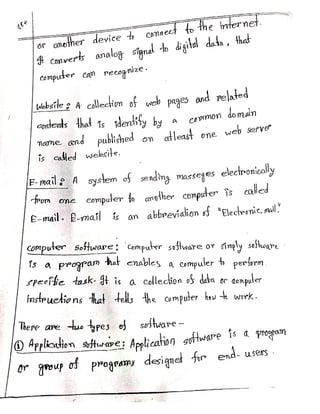 or another device to connect to the internet.
It converts analog signal to digital data, that
computer can recognize.
Website: A collection of web pages and related
contents that is identify by a common domain
name and published on atleast one web server
is called website.
E-mail: A system of sending masseges electronically
from one computer to another computer is called
E-mail. E-mail is an abbreviation of "Electronic mail."
computer software: Computer software or simply software
is a program that enables a computer to perform
specific task. It is a collection of data or computer
instructions that tells the computer how to work.
There are two types of software-
① Application software: Application software is a program
or group of programs designed for end-users.